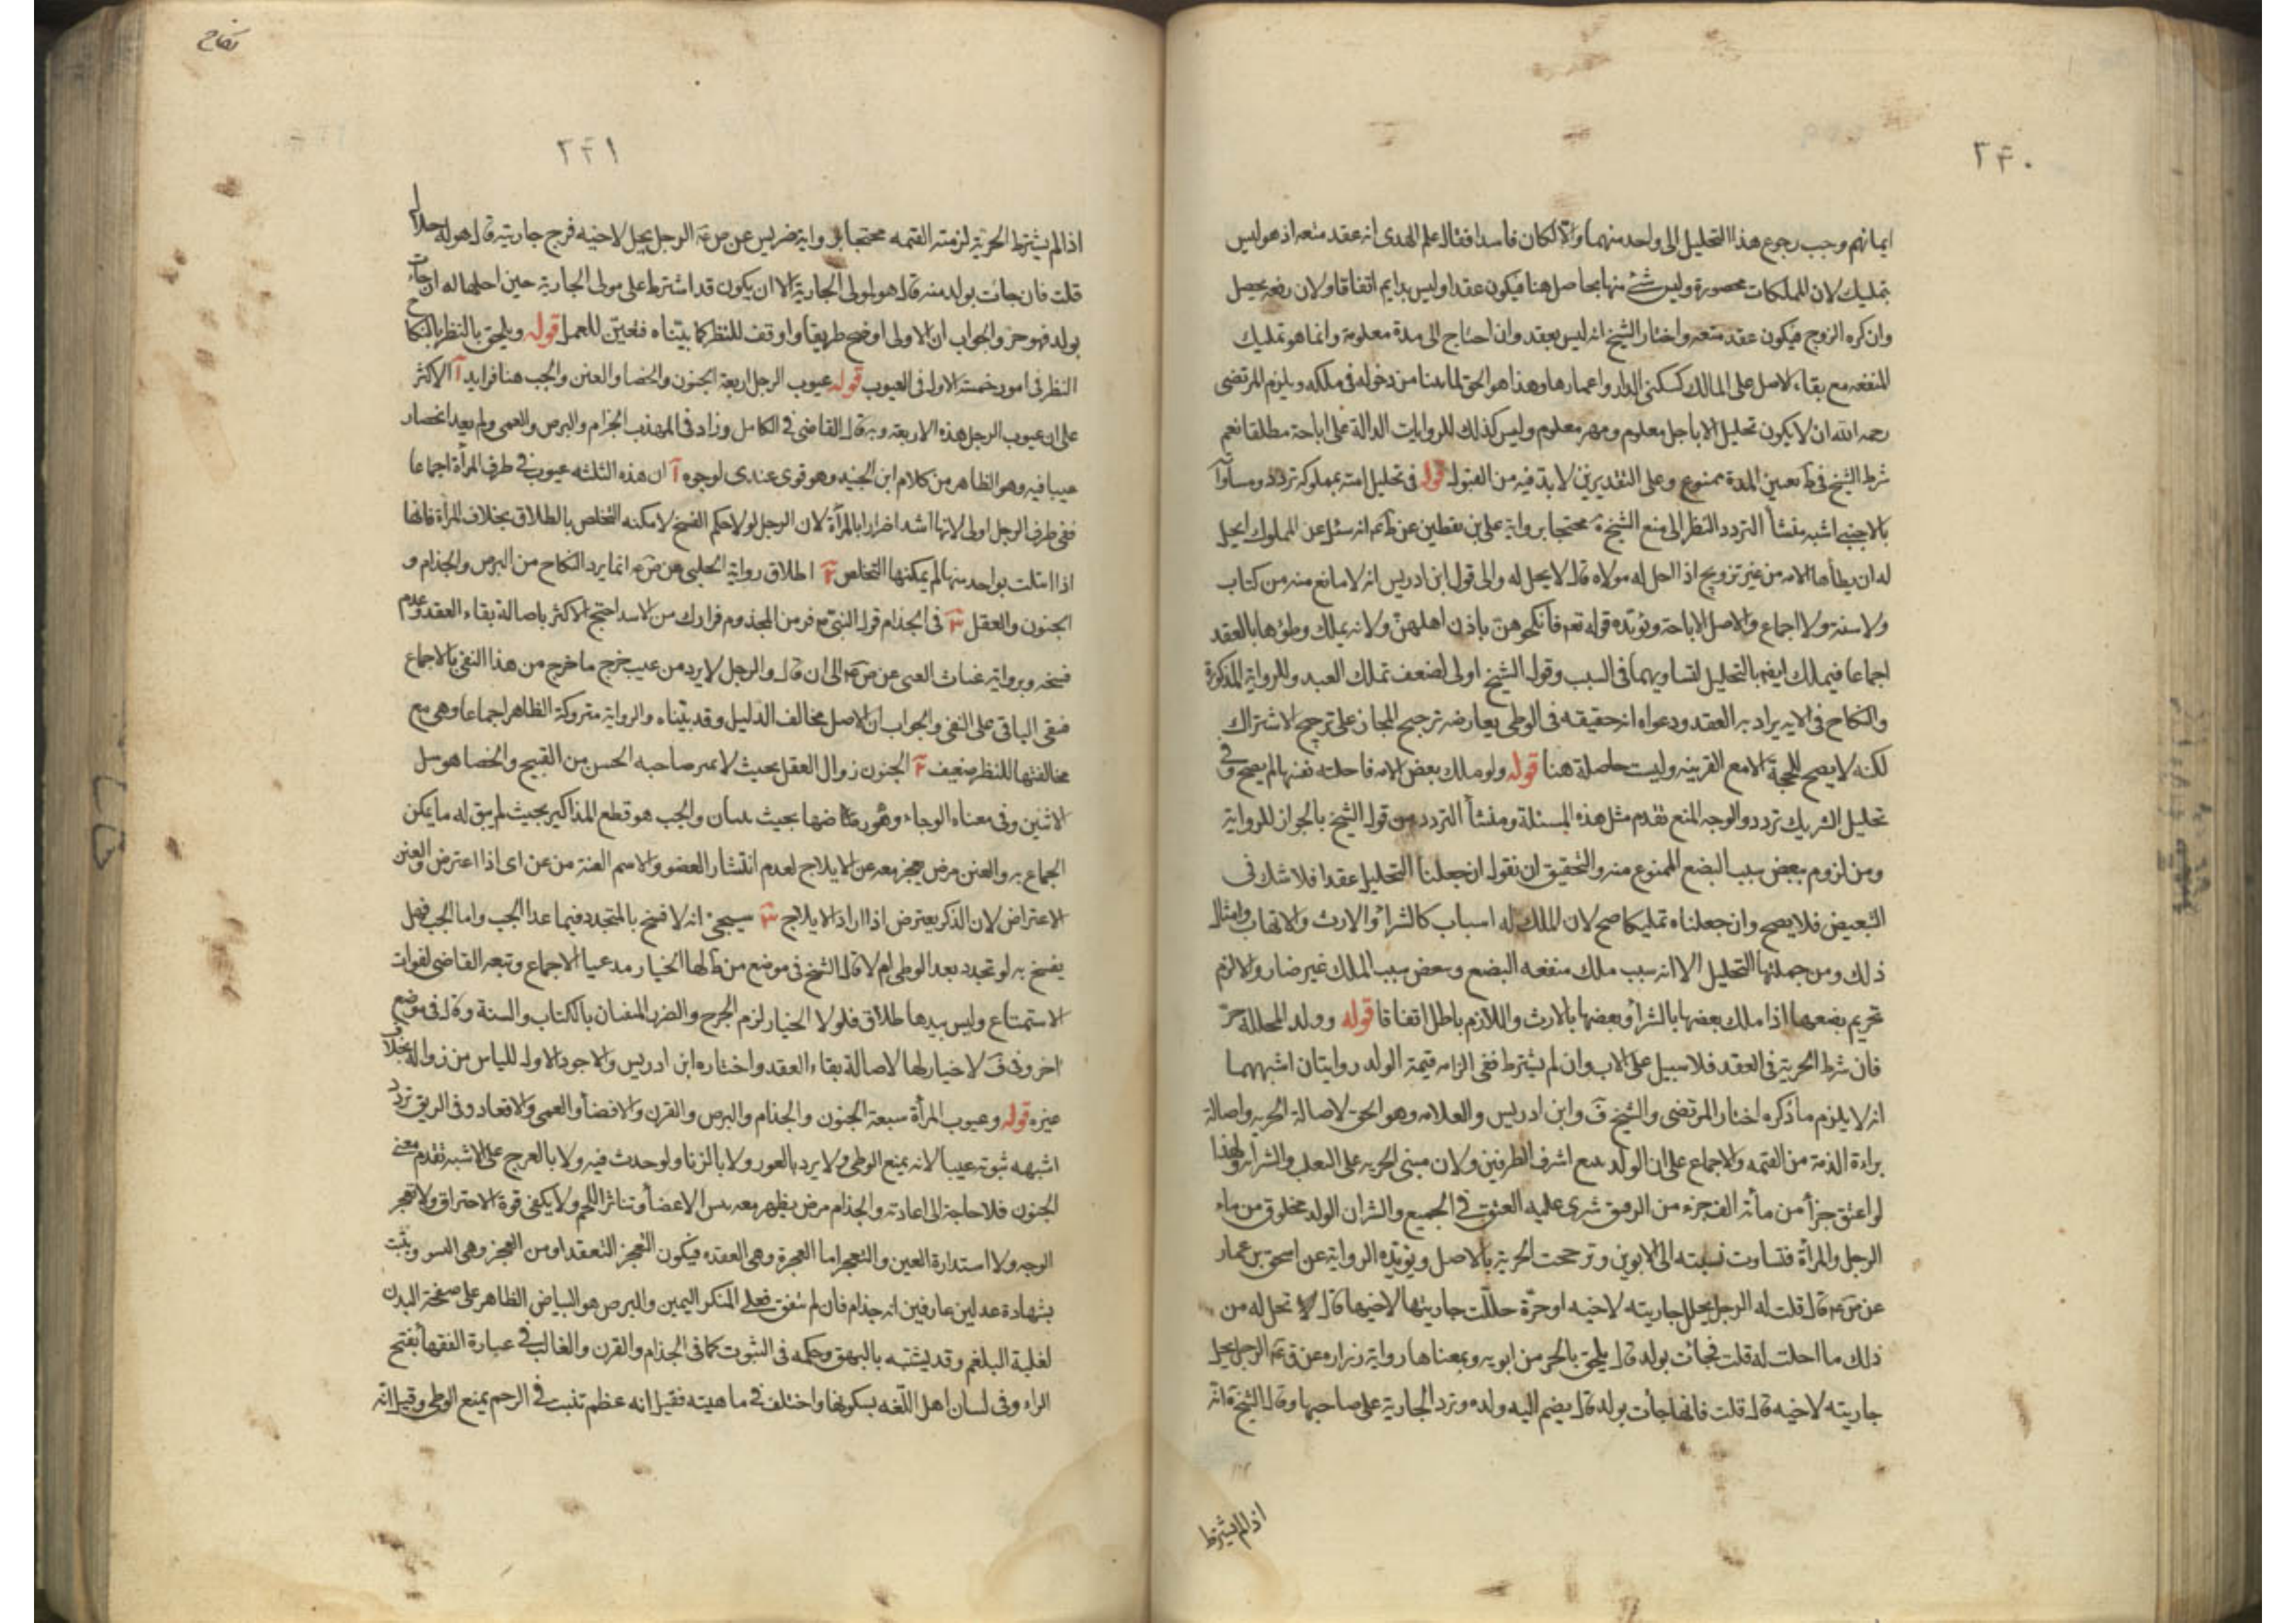 ٢٤٠
ايمانهم وجب رجوع هذا التحليل الى واحد منهما والا لكان فاسدا فقال علم الهدى انه عقد متعه اذ هو ليس
بتمليك لان المملكات محصورة وليس شئ منها بحاصل هنا فيكون عقدا وليس بدايم اتفاقا ولان رفعه يحصل
وان كره الزوج فيكون عقد متعه واختار الشيخ انه ليس بعقد وان احتاج الى مدة معلومة وانما هو تمليك
المنفعه مع بقاء الاصل على المالك كسكنى الدار واعمارها وهذا هو الحق لما بينا من دخوله فى ملكه ويلزم المرتضى
رحمه الله ان لا يكون تحليل الا باجل معلوم ومهر معلوم وليس كذلك للروايات الدالة على اباحة مطلقا نعم
شرط الشيخ فى ط تعيين المدة ممنوع وعلى التقديرين لا بد فيه من القبول قوله فى تحليل امته بمملوكه تردد ومساواته
بالاجنبى اشبه منشأ التردد النظر الى منع الشيخ محتجا برواية على بن يقطين عن انه سئل عن المملوك ايحل
له ان يطأ الامه من غير تزويج اذا احل له مولاه قال لا يحل له والى قول ابن ادريس انه لا مانع منه من كتاب
ولا سنة ولا اجماع والاصل الاباحة ويؤيده قوله تعم فانكحوهن باذن اهلهن ولانه يملك وطئها بالعقد
اجماعا فيملك ايضا بالتحليل لتساويهما فى السبب وقول الشيخ اولى لضعف تملك العبد وللرواية المذكورة
والنكاح فى الايه يراد به العقد ودعواه انه حقيقه فى الوطى يعارضه ترجيح المجاز على ترجيح الاشتراك
لكنه لا يصح للحجة الا مع القرينه وليست حاصلة هنا قوله ولو ملك بعض الامه فاحلته نفسها لم يصح وفى
تحليل الشريك تردد والوجه المنع تقدم مثل هذه المسئلة ومنشأ التردد من قول الشيخ بالجواز للرواية
ومن لزوم تبعض سبب البضع الممنوع منه والتحقيق ان نقول ان جعلنا التحليل عقدا فلا شك فى
التبعيض فلا يصح وان جعلناه تمليكا صح لان الملك له اسباب كالشراء والارث والاتهاب وامثال
ذلك ومن جملتها التحليل الا انه سبب ملك منفعه البضع وبعض سبب الملك غير ضار والا لزم
تحريم بضعها اذا ملك بعضها بالشراء وبعضها بالارث واللازم باطل اتفاقا قوله وولد المحللة حر
فان شرط الحرية فى العقد فلا سبيل على الاب وان لم يشترط ففى الزامه قيمة الولد روايتان اشبههما
انه لا يلزم ما ذكره اختار المرتضى والشيخ ف وابن ادريس والعلامه وهو الحق لاصالة الحريه واصالة
براءة الذمة من القيمه والاجماع على ان الولد يتبع اشرف الطرفين ولان مبنى الحريه على التغلب والسراية ولهذا
لو اعتق جزأ من مأته الف جزء من الرقيق سرى عليه العتق فى الجميع والشران الولد مخلوق من ماء
الرجل والمرأة فتساوت نسبته الى الابوين وترجحت الحرية بالاصل ويؤيده الرواية عن اسحق بن عمار
عن ص ع م قال قلت له الرجل يحلل جاريته لاخيه او حرة حللت جاريتها لاخيها قال تحل له من
ذلك ما احلت له قلت فجائت بولد قال يلحق بالحر من ابويه وبمعناها رواية زراره عن ق ع م الرجل يحل
جاريته لاخيه قال قلت فانها جأت بولد قال يضم اليه ولده وترد الجارية على صاحبها وقال الشيخ انه
اذا لم يشترط
نكاح
٢٤١
اذا لم يشترط الحرية لزمته القيمه محتجا برواية ضريس عن ص ع م الرجل يحل لاخيه فرج جاريته قال هو له حلال
قلت فان جائت بولد منه قال هو لمولى الجارية الا ان يكون قد اشترط على مولى الجارية حين احلها له ان جاءت
بولد فهو حر والجواب ان الاولى اوضح طريقا واوفق للنظر كما بيناه فتعين للعمل قوله ويلحق بالنظر بالنكاح
النظر فى امور خمسة الاول فى العيوب قوله عيوب الرجل اربعة الجنون والخصا والعنن والجب هنا فوايد آ الاكثر
على ان عيوب الرجل هذه الاربعة وبه قال القاضى فى الكامل وزاد فى المهذب الجذام والبرص والعمى ولم يعيد انحصار
عيبا فيه وهو الظاهر من كلام ابن الجنيد وهو قوى عندى لوجوه آ ان هذه الثلثه عيوب فى طرف المرأة اجماعا
ففى طرف الرجل اولى لانها اشد اضرارا بالمرأة لان الرجل لو لا حكم الفسخ لامكنه التخلص بالطلاق بخلاف المرأة فانها
اذا ابتلت بواحد منها لم يمكنها التخلص ٢ اطلاق رواية الحلبى عن ص ع م انما يرد النكاح من البرص والجذام و
الجنون والعقل ٣ فى الجذام قول النبى ص فر من المجذوم فرارك من الاسد احتج الاكثر باصالة بقاء العقد وعدم
فسخه وبرواية غياث الضبى عن ص ع م الى ان قال والرجل لا يرد من عيب خرج ما خرج من هذا النفى بالاجماع
فبقى الباقى على النفى والجواب ان الاصل مخالف الدليل وقد بيناه والرواية متروكة الظاهر اجماعا وهى مع
مخالفتها للنظر ضعيف ٢ الجنون زوال العقل بحيث لا يميز صاحبه الحسن من القبيح والخصا هو سل
الانثيين وفى معناه الوجاء وهو رضاضها بحيث والجب هو قطع المذاكير بحيث لم يبق له ما يمكن
الجماع به والعنن مرض يعجز معه عن الايلاج لعدم انتشار العضو والاسم العنة من عن اى اذا اعترض والعنن
الاعتراض لان الذكر يعترض اذا اراد الايلاج ٣ سيجئ انه لا فسخ بالمتجدد فيما عدا الجب واما الجب فهل
يفسخ به لو تجدد بعد الوطى ام لا قال الشيخ فى موضع من ط لها الخيار مدعيا الاجماع وتبعه القاضى لفوات
الاستمتاع وليس بيدها طلاق فلولا الخيار لزم الحرج والضرر المنفيان بالكتاب والسنة وقال فى موضع
اخر وفى ف لا خيار لها لاصالة بقاء العقد واختاره ابن ادريس والاجود الاول لليأس من زواله بخلاف
غيره قوله وعيوب المرأة سبعة الجنون والجذام والبرص والقرن والافضأ والعمى والاقعاد وفى الرتق تردد
اشبهه ثبوته عيبا لانه يمنع الوطى ولا يرد بالعور ولا بالزنا ولو حدث فيه ولا بالعرج على الاشبه تقدم معنى
الجنون فلا حاجة الى اعادته والجذام مرض يظهر معه يبس الاعضأ وتناثر اللحم ولا يكفى قوة الاحتراق ولا تعجر
الوجه ولا استدارة العين والتعجر اما العجرة وهى العقده فيكون التعجر التعقد او من العجز وهى ويثبت
بشهادة عدلين عارفين انه جذام فان لم يتفق فعلى المنكر اليمين والبرص هو البياض الظاهر على صفحة البدن
لغلبة البلغم وقد يشتبه بالبهق وحكمه فى الثبوت كما فى الجذام والقرن والغالب فى عبارة الفقهأ بفتح
الراء وفى لسان اهل اللغه بسكونها واختلف فى ماهيته فقيل انه عظم تنبت فى الرحم يمنع الوطى وقيل انه